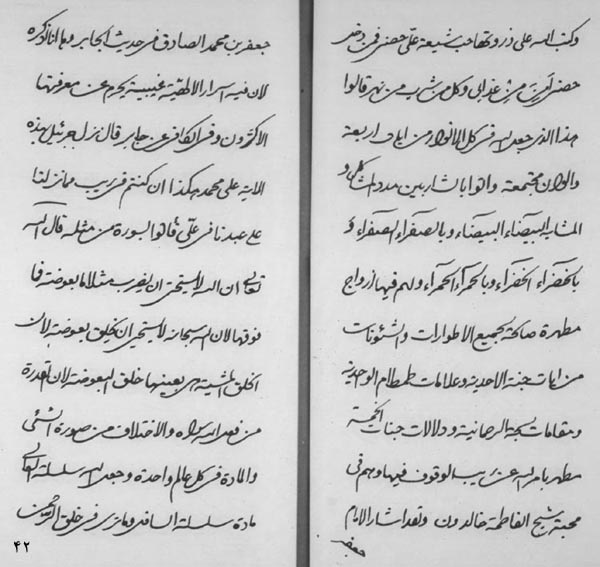 وكتب الله على ذروتها حب شيعة علّي حضني فمن دخل
حضني آمن من عذابي وكل من شرب من نهر قالوا
هذا الذي جعل الله في كل الانهار من ايات اربعة
والوان مجتمعة واتوا بالشاربين مدد المشاكل و
المشابه البيضاء البيضاء وبالصفراء الصفراء و
بالخضراء الخضراء وبالحمراء الحمراء ولهم فيها ازواج
مطهرة صالحة لجميع الاطوارات والشئونات
من ايات جنة الاحدية وعلامات طمطام الوحدية
ومقامات لجة الرحمانية ودلالات جنات
مطهر بامر الله عن ريب الوقوف فيها وهم في
محبة شيح الفاطمة خالدون ولقد اشار الامام
جعفر
جعفر بن محمد الصادق في حديث الجابر وها انا اذكره
لان فيه اسرار الالهية غيبية يحرم عن معرفتها
الاكثرون وفي الكافي عن جابر قال نزل جبرئيل بهذه
الاية على محمد هكذا ان كنتم في ريب مما نزلنا
على عبدنا في علّي فاتوا بسورة من مثله قال الله
تعالى ان الله لا يستحيى ان يضرب مثلا ما بعوضة فما
فوقها لان الله سبحانه لا يستحيى ان يخلق بعوضة لان
الخلق المشية هي بعينها خلق البعوضة لان القدرة
من فعل الله سواه والاختلاف من صورة الشئ
والمادة في كل عالم واحدة وجعل الله سلسلة العالي
مادة سلسلة السافل وما ترى في خلق الرحمن
۴۲